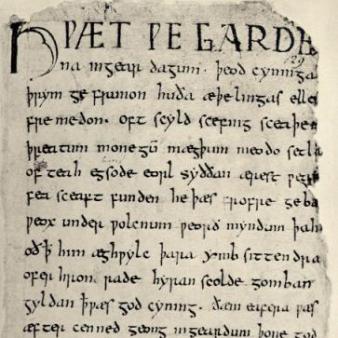 HǷÆT ǷE GARDE
na ingear dagum. þeod cyninga
þrym ge frunon huða æþelingas elle
fre medon. oft scyld scefing sceaþe
þreatum monegū mægþum meodo setla
of teah egsode eorl syððan ærest ƿear
fea sceaft funden he þæs frofre geba
ƿeox under ƿolcnum ƿeorð myndum þah
oð ꝥ him æghƿylc þara ymb sittendra
ofer hron rade hyran scolde gomban
gyldan ꝥ ƿæs god cyning. ðæm eafera ƿæs
æfter cenned geong ingeardum þone god